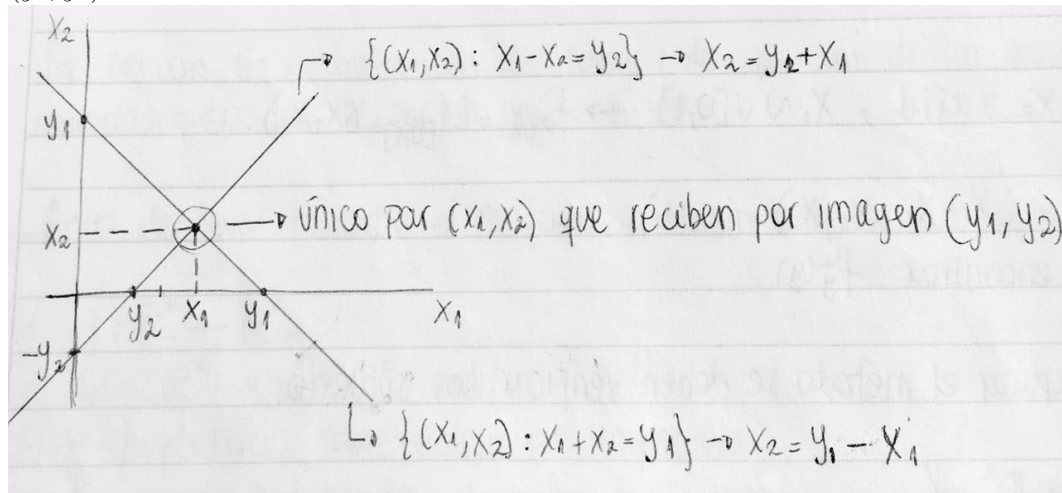 X₂
→ {(X₁,X₂): X₁-X₂=y₂} → X₂=y₂+X₁
y₁
X₂
→ único par (X₁,X₂) que reciben por imagen (y₁,y₂)
y₂ X₁ y₁ X₁
-y₂
↳ {(X₁,X₂): X₁+X₂=y₁} → X₂=y₁-X₁